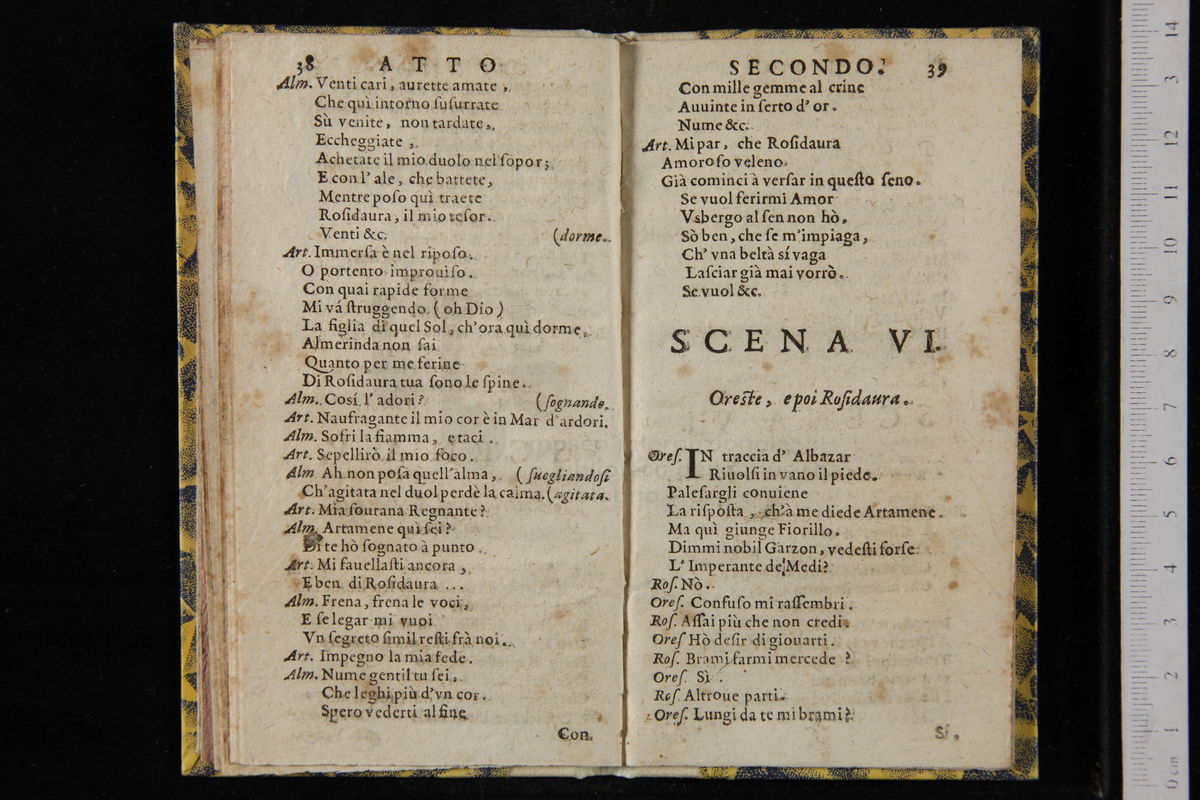 38 ATTO
Alm. Venti cari, aurette amate,
Che quì intorno ſuſurrate
Sù venite, non tardate,
Eccheggiate,
Achetate il mio duolo nel ſopor;
E con l' ale, che battete,
Mentre poſo quì traete
Roſidaura, il mio teſor.
Venti &c. (dorme.
Art. Immerſa è nel ripoſo.
O portento improuiſo.
Con quai rapide forme
Mi vá ſtruggendo (oh Dio)
La figlia di quel Sol, ch'ora quì dorme,
Almerinda non ſai
Quanto per me ferine
Di Roſidaura tua ſono le ſpine.
Alm. Cosí l' adori? (ſognando.
Art. Naufragante il mio cor è in Mar d'ardori.
Alm. Sofri la fiamma, e taci.
Art. Sepellirò il mio foco.
Alm Ah non poſa quell'alma, (ſuegliandoſi
Ch'agitata nel duol perdè la calma. (agitata.
Art. Mia ſourana Regnante?
Alm. Artamene quì ſei?
Di te hò ſognato à punto.
Art. Mi fauellaſti ancora,
E ben di Roſidaura ...
Alm. Frena, frena le voci,
E ſe legar mi vuoi
Vn ſegreto ſimil reſti frà noi.
Art. Impegno la mia fede.
Alm. Nume gentil tu ſei,
Che leghi più d'vn cor.
Spero vederti al fine
Con
SECONDO. 39
Con mille gemme al crine
Auuinte in ſerto d' or.
Nume &c.
Art. Mi par, che Roſidaura
Amoroſo veleno
Già cominci à verſar in queſto ſeno.
Se vuol ferirmi Amor
Vsbergo al ſen non hò.
Sò ben, che ſe m'impiaga,
Ch' vna beltà sí vaga
Laſciar già mai vorrò.
Se vuol &c.
SCENA VI.
Oreſte, e poi Roſidaura.
Oreſ. IN traccia d' Albazar
Riuolſi in vano il piede.
Paleſargli conuiene
La riſpoſta, ch'à me diede Artamene.
Ma quì giunge Fiorillo.
Dimmi nobil Garzon, vedeſti forſe
L' Imperante de' Medi?
Roſ. Nò.
Oreſ. Confuſo mi raſſembri.
Roſ. Aſſai più che non credi.
Oreſ Hò deſir di giouarti.
Roſ. Brami farmi mercede?
Oreſ. Sì.
Roſ. Altroue parti.
Oreſ. Lungi da te mi brami?
Sí.
0 cm 1 2 3 4 5 6 7 8 9 10 11 12 3 14